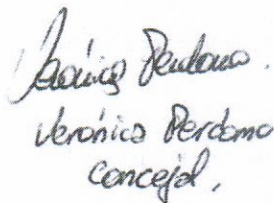 Verónica Perdomo.
Verónica Perdomo
concejal,